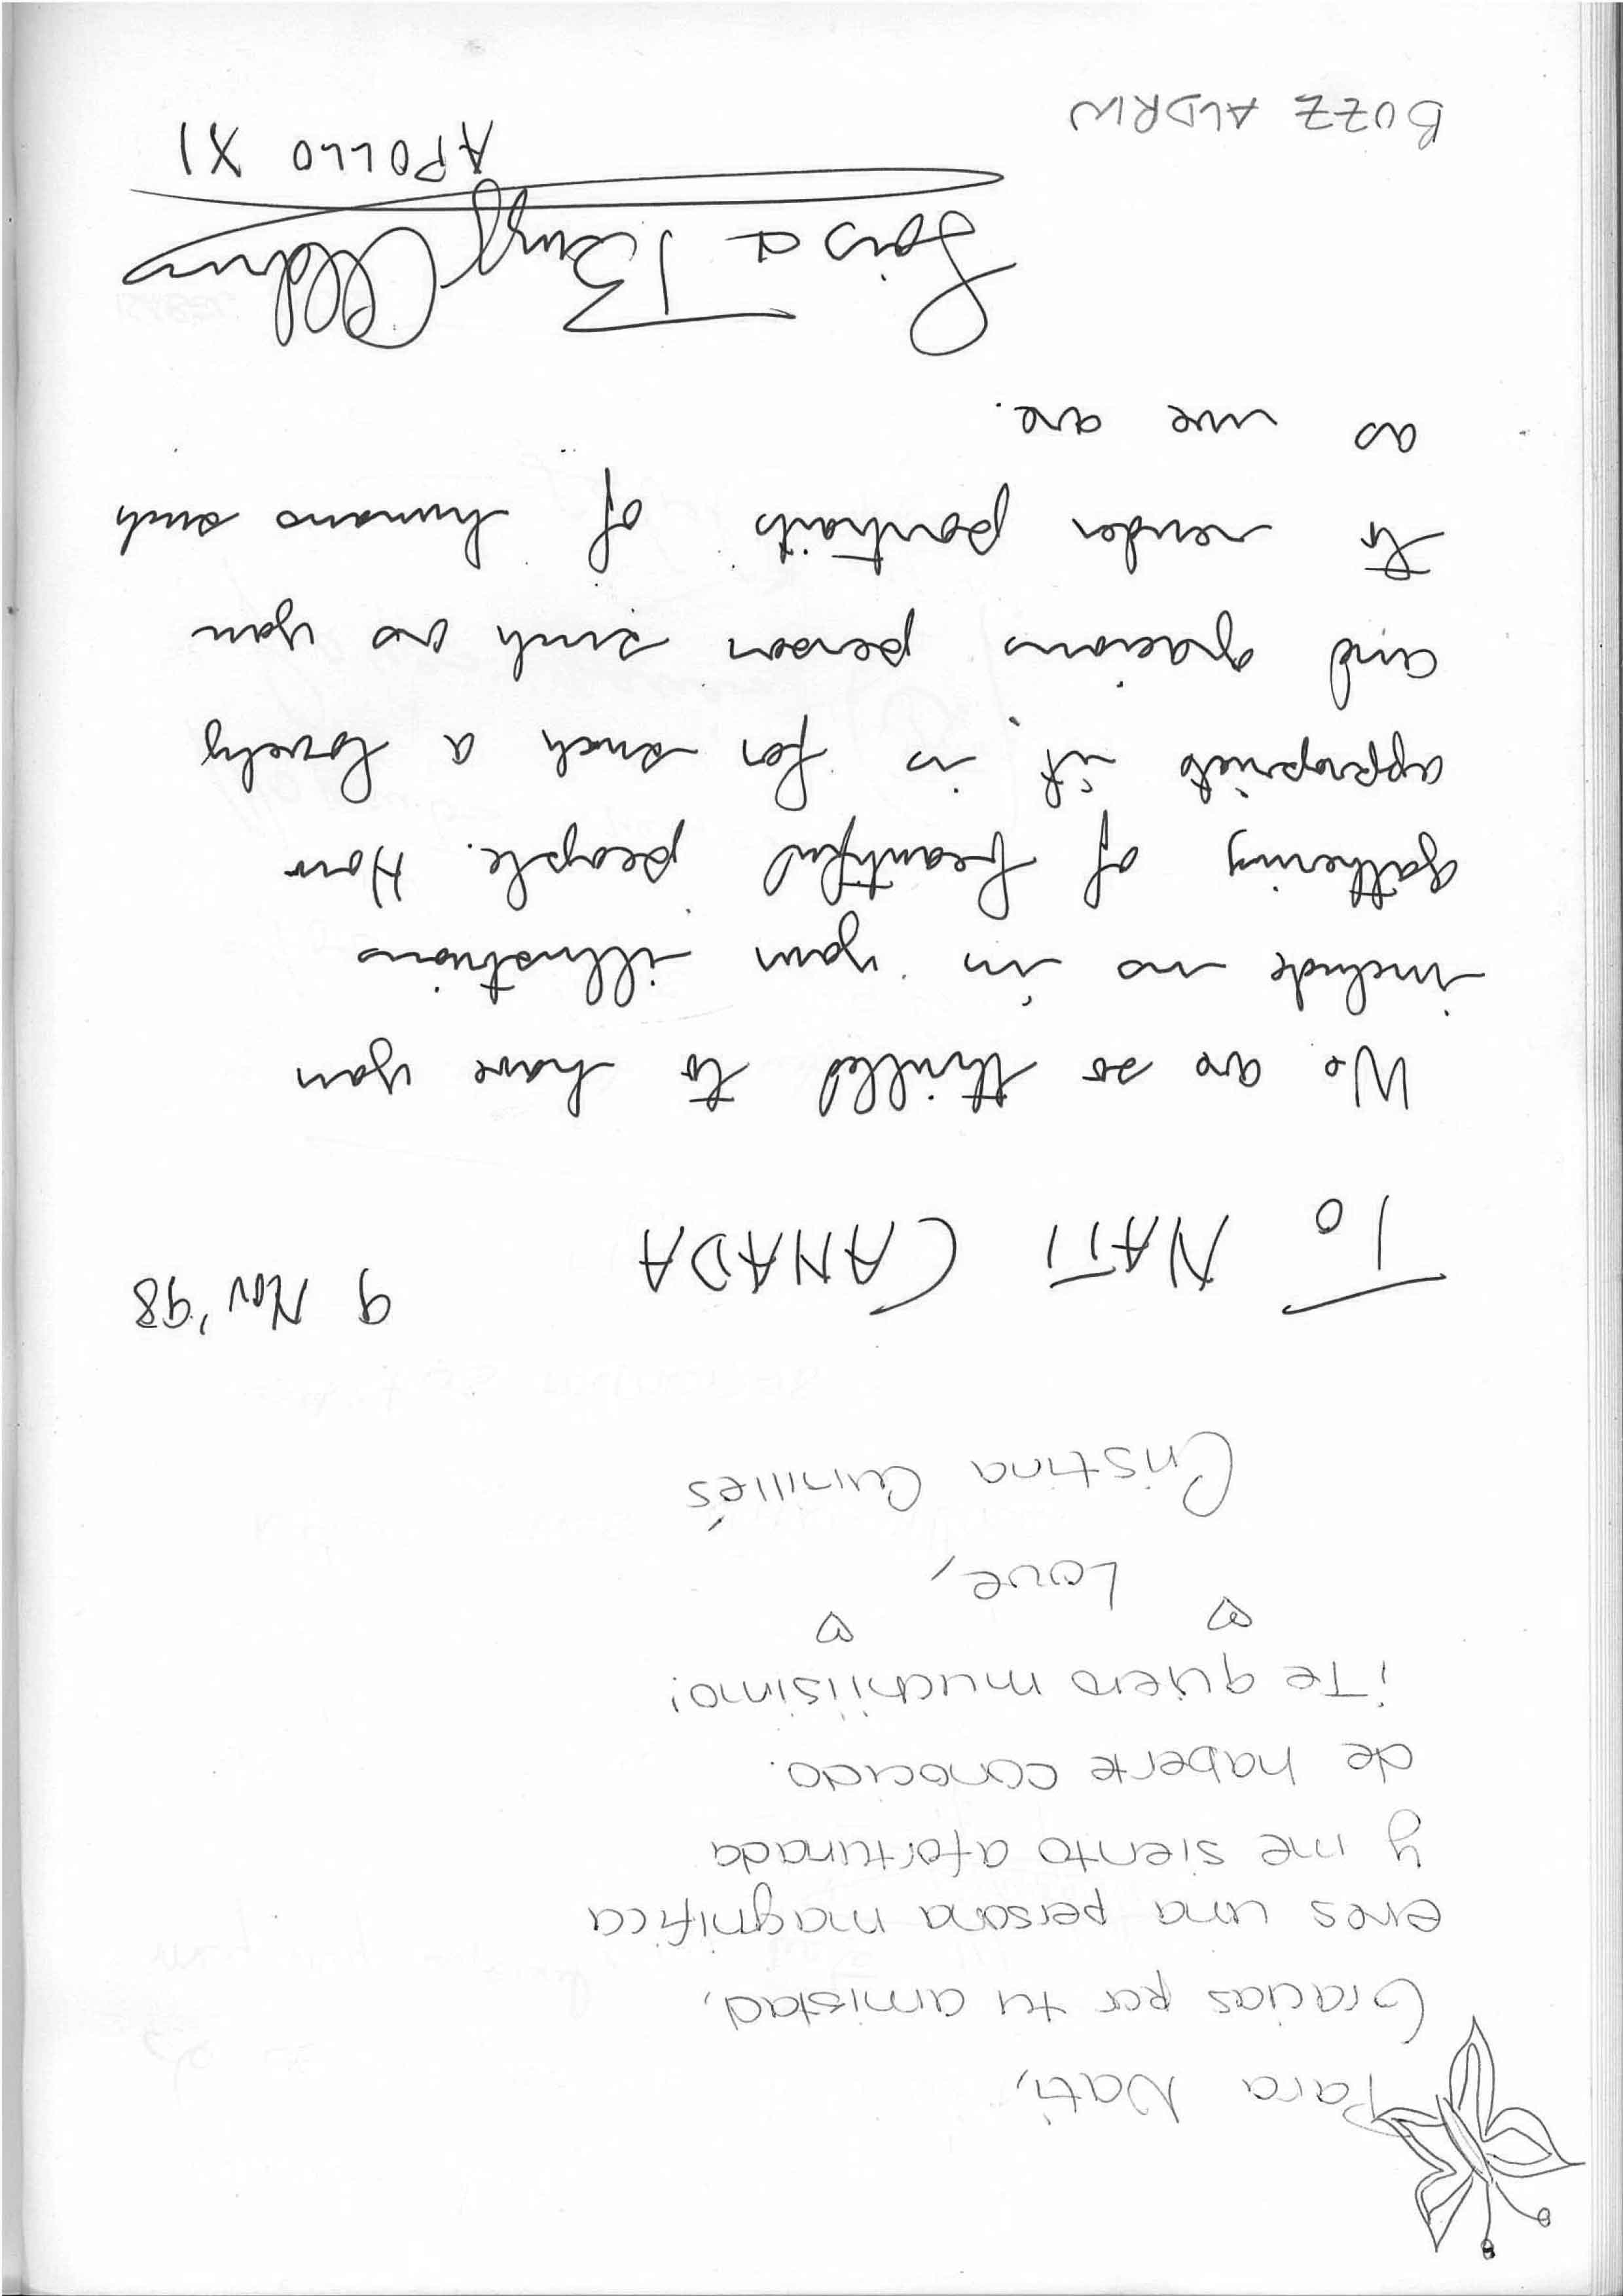 Para Nati,
Gracias por tu amistad,
eres una persona magnifica
y me siento afortunada
de haberte conocido.
¡Te quiero muchiisimo!
Love,
Cristina
9 Nov '98
To NATI CANADA
We are so thrilled to have you
include us in your illustrious
gathering of beautiful people. How
appropriate it is for such a lovely
and gracious person such as you
to render portraits of humans such
as we are.
Lois & Buzz Aldrin
APOLLO XI
BUZZ ALDRIN